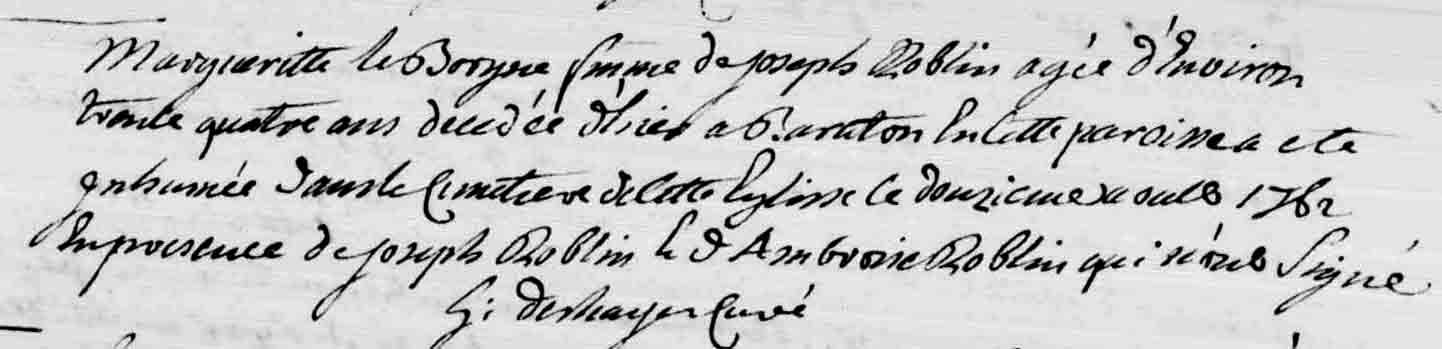 Margueritte le Borgne femme de joseph Roblin agée d'Environ
trente quatre ans decedée d'hier a Baraton En Cette paroisse a ete
enhumée dans le Cimetiere de Cette Eglisse le douzieme aoust 1762
En presence de joseph Roblin Et d'Ambroise Roblin qui n'ont Signé
G: deshayes Curé